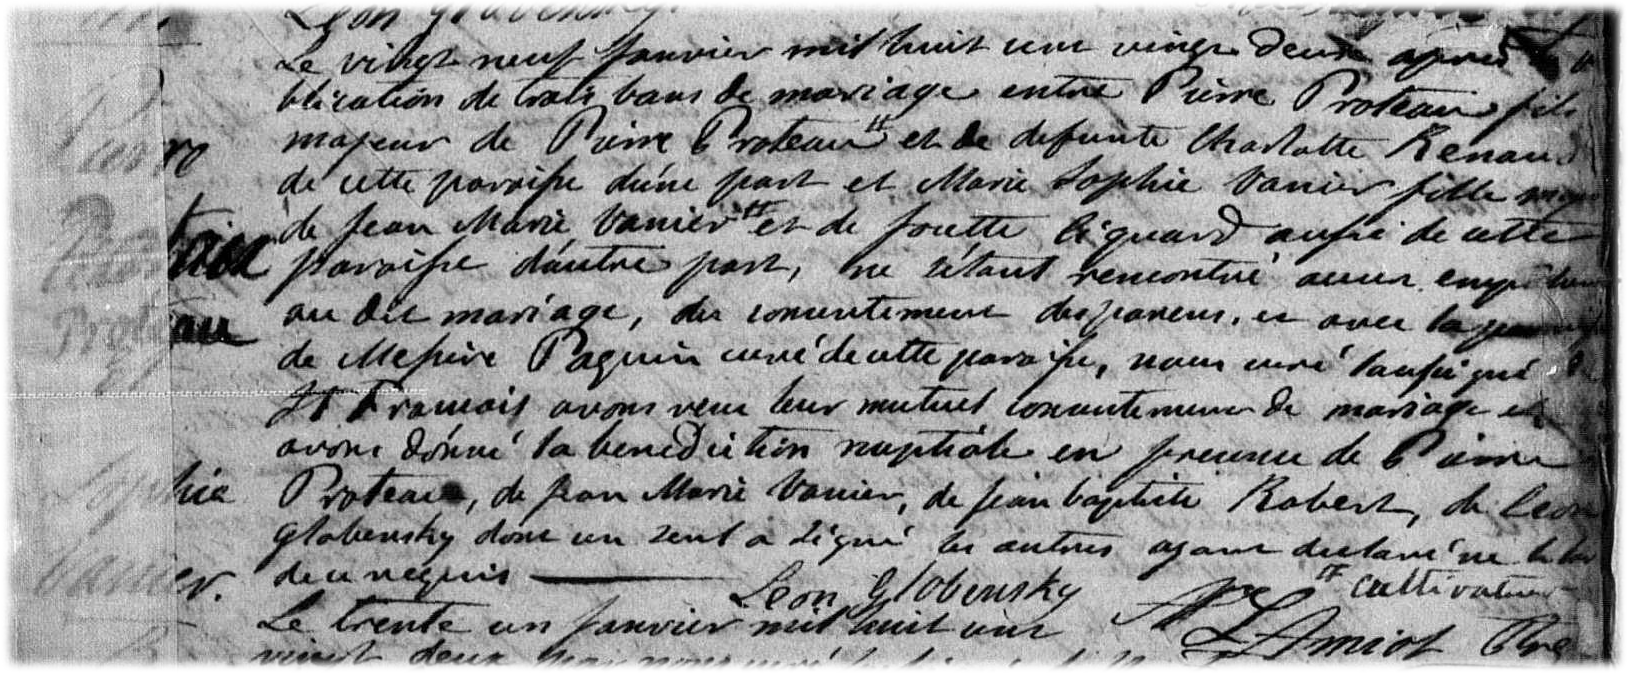 Leon Globensky.
Le vingt neuf Janvier mil huit cent vingt deux apres
blication de trois bans de mariage entre Pierre Proteau fils
majeur de Pierre Proteau tt et de defunte Charlotte Renaud
de cette paroisse d'une part et Marie Sophie Vanier fille
de Jean Marie Vanier tt et de Joette Siguard aussi de cette
paroisse d'autre part, ne s'étant rencontré aucun
au dit mariage, du consentement des parens, et avec la
de Messire Paquin curé de cette paroisse, nous curé soussigné
St Francois avons recu leur mutuel consentement de mariage et
avons donné la benediction nuptiale en presence de Pierre
Proteau, de Jean Marie Vanier, de Jean baptiste Robert, de Leon
globensky dont un seul a signé les autres ayant declaré ne le
de ce requis
Leon Globensky
tt cultivateur
Amiot Ptre
Le trente un Janvier mil huit cent
vingt deux
Pierre
Proteau
et
Sophie
Vanier.